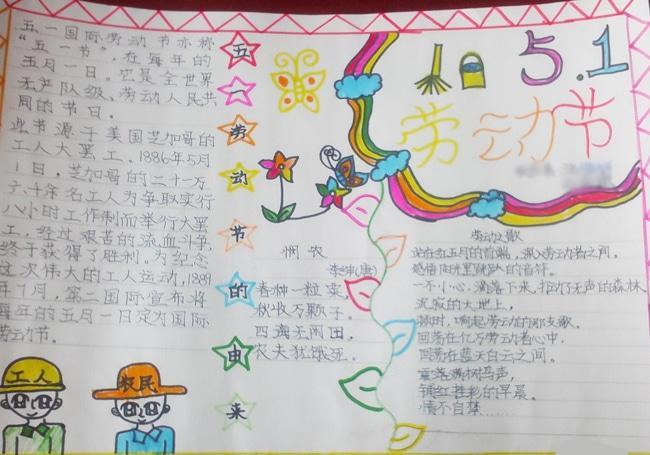 五一国际劳动节亦称
“五一节”，在每年的
五月一日。它是全世界
无产队级、劳动人民共
同的节日。
此节源于美国芝加哥的
工人大罢工。1886年5月
1日，芝加哥的二十一万
六千余名工人为争取实行
八小时工作制而举行大罢
工，经过艰苦的流血斗争，
终于获得了胜利。为纪念
这次伟大的工人运动，1889
年7月，第二国际宣布将
每年的五月一日定为国际
劳动节。
工人
农民
五一劳动节的由来
悯农
李绅(唐)
春种一粒粟，
秋收万颗子。
四海无闲田，
农夫犹饿死。
5.1
劳动节
劳动之歌
站在红五月的首端，深入劳动者之间。
感悟
一不小心，滴落下来，打动了无声的森林
沉寂的大地上，
顿时，响起劳动的那支歌。
回荡在亿万劳动者心中，
回荡在蓝天白云之间。
震落满树鸟声，
铺红挂彩的早晨。
情不自禁……